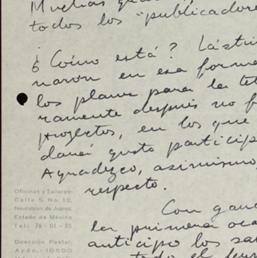 Muchas gra
todos los "publicadore
¿Cómo está? Lásti
naron en esa forma
los planes para la te
ramente después no
proyectos, en los que
dará gusto particip
Agradezco, asimismo
respecto.
Con gan
la primera oca
anticipo los sa
todo el
Oficinas y Talleres:
Calle 5 No. 12,
Naucalpan de Juárez,
Estado de México
Tel: 76-01-35
Dirección Postal:
Apdo. 10500